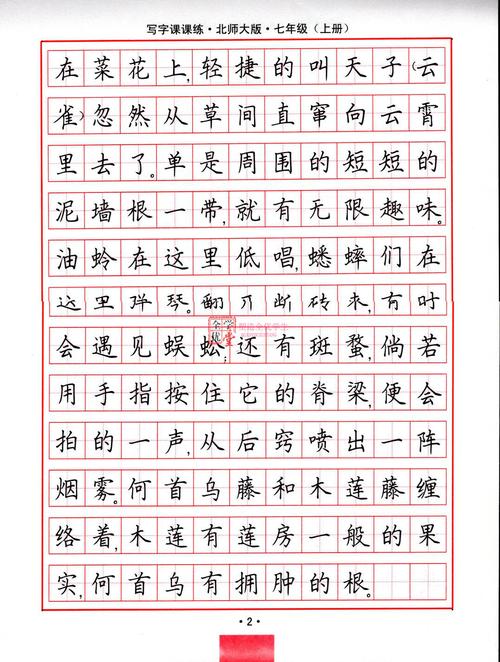 写字课课练·北师大版·七年级（上册）
在菜花上,轻捷的叫天子(云
雀)忽然从草间直窜向云霄
里去了。单是周围的短短的
泥墙根一带,就有无限趣味。
油蛉在这里低唱,蟋蟀们在
这里弹琴。翻开断砖来,有时
会遇见蜈蚣;还有斑蝥,倘若
用手指按住它的脊梁,便会
拍的一声,从后窍喷出一阵
烟雾。何首乌藤和木莲藤缠
络着,木莲有莲房一般的果
实,何首乌有拥肿的根。
·2·